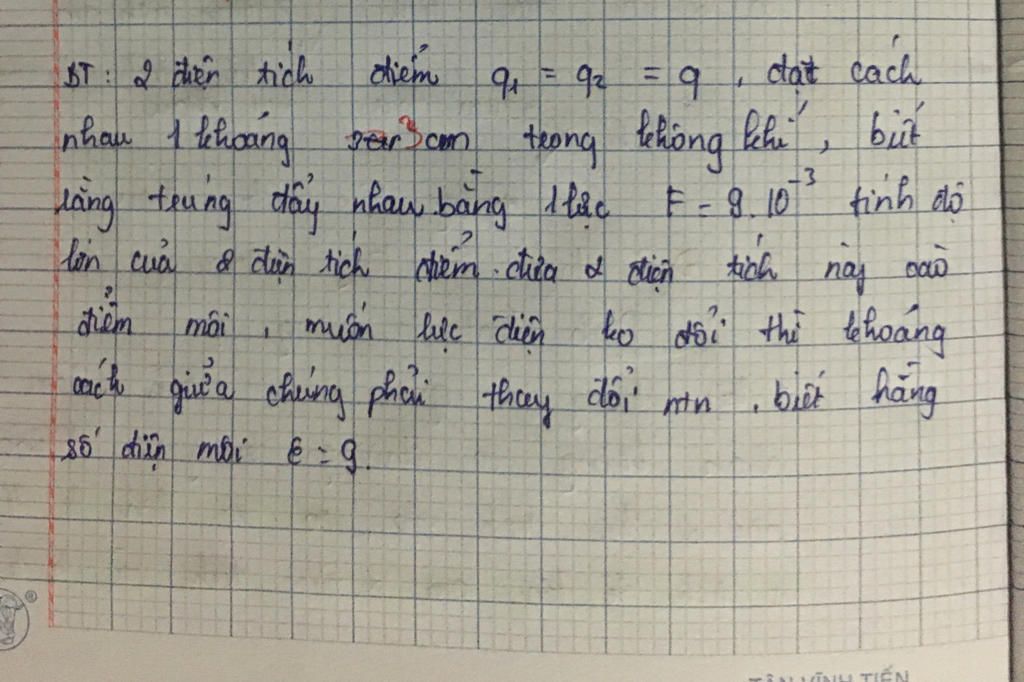 BT: 2 điện tích điểm q1 = q2 = q, đặt cách
nhau 1 khoảng 3cm trong không khí, biết
rằng trúng đẩy nhau bằng 1 lực F = 9.10⁻³ tính độ
lớn của 2 điện tích điểm. đưa 2 điện tích này vào
điểm môi, muốn lực điện ko đổi thì khoảng
cách giữa chúng phải thay đổi ntn. biết hằng
số điện môi ε = 9.
TÂN VĨNH TIẾN